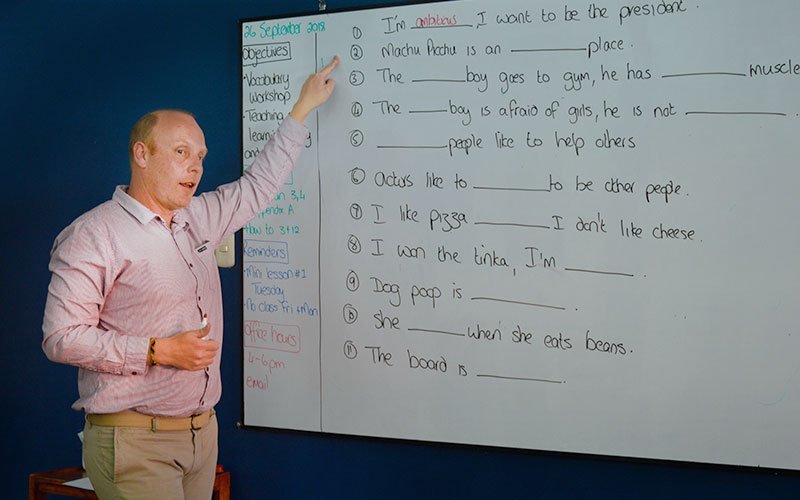 26 September 2018
Objectives
• Vocabulary
Workshop
• Teaching
learning
and
3,4
A
How to 3+12
Reminders
• Mini lesson #1
Tuesday
• No class Fri + Mon
Office hours
4-6pm
email
① I'm ambitious, I want to be the president.
② Machu Picchu is an ________ place.
③ The ______ boy goes to gym, he has ________ muscle
④ The ____ boy is afraid of girls, he is not __________.
⑤ _______ people like to help others
⑥ Actors like to ________ to be other people.
⑦ I like pizza ________ I don't like cheese.
⑧ I won the tinka, I'm _______.
⑨ Dog poop is _________.
⑩ She ______ when she eats beans.
⑪ The board is ________.